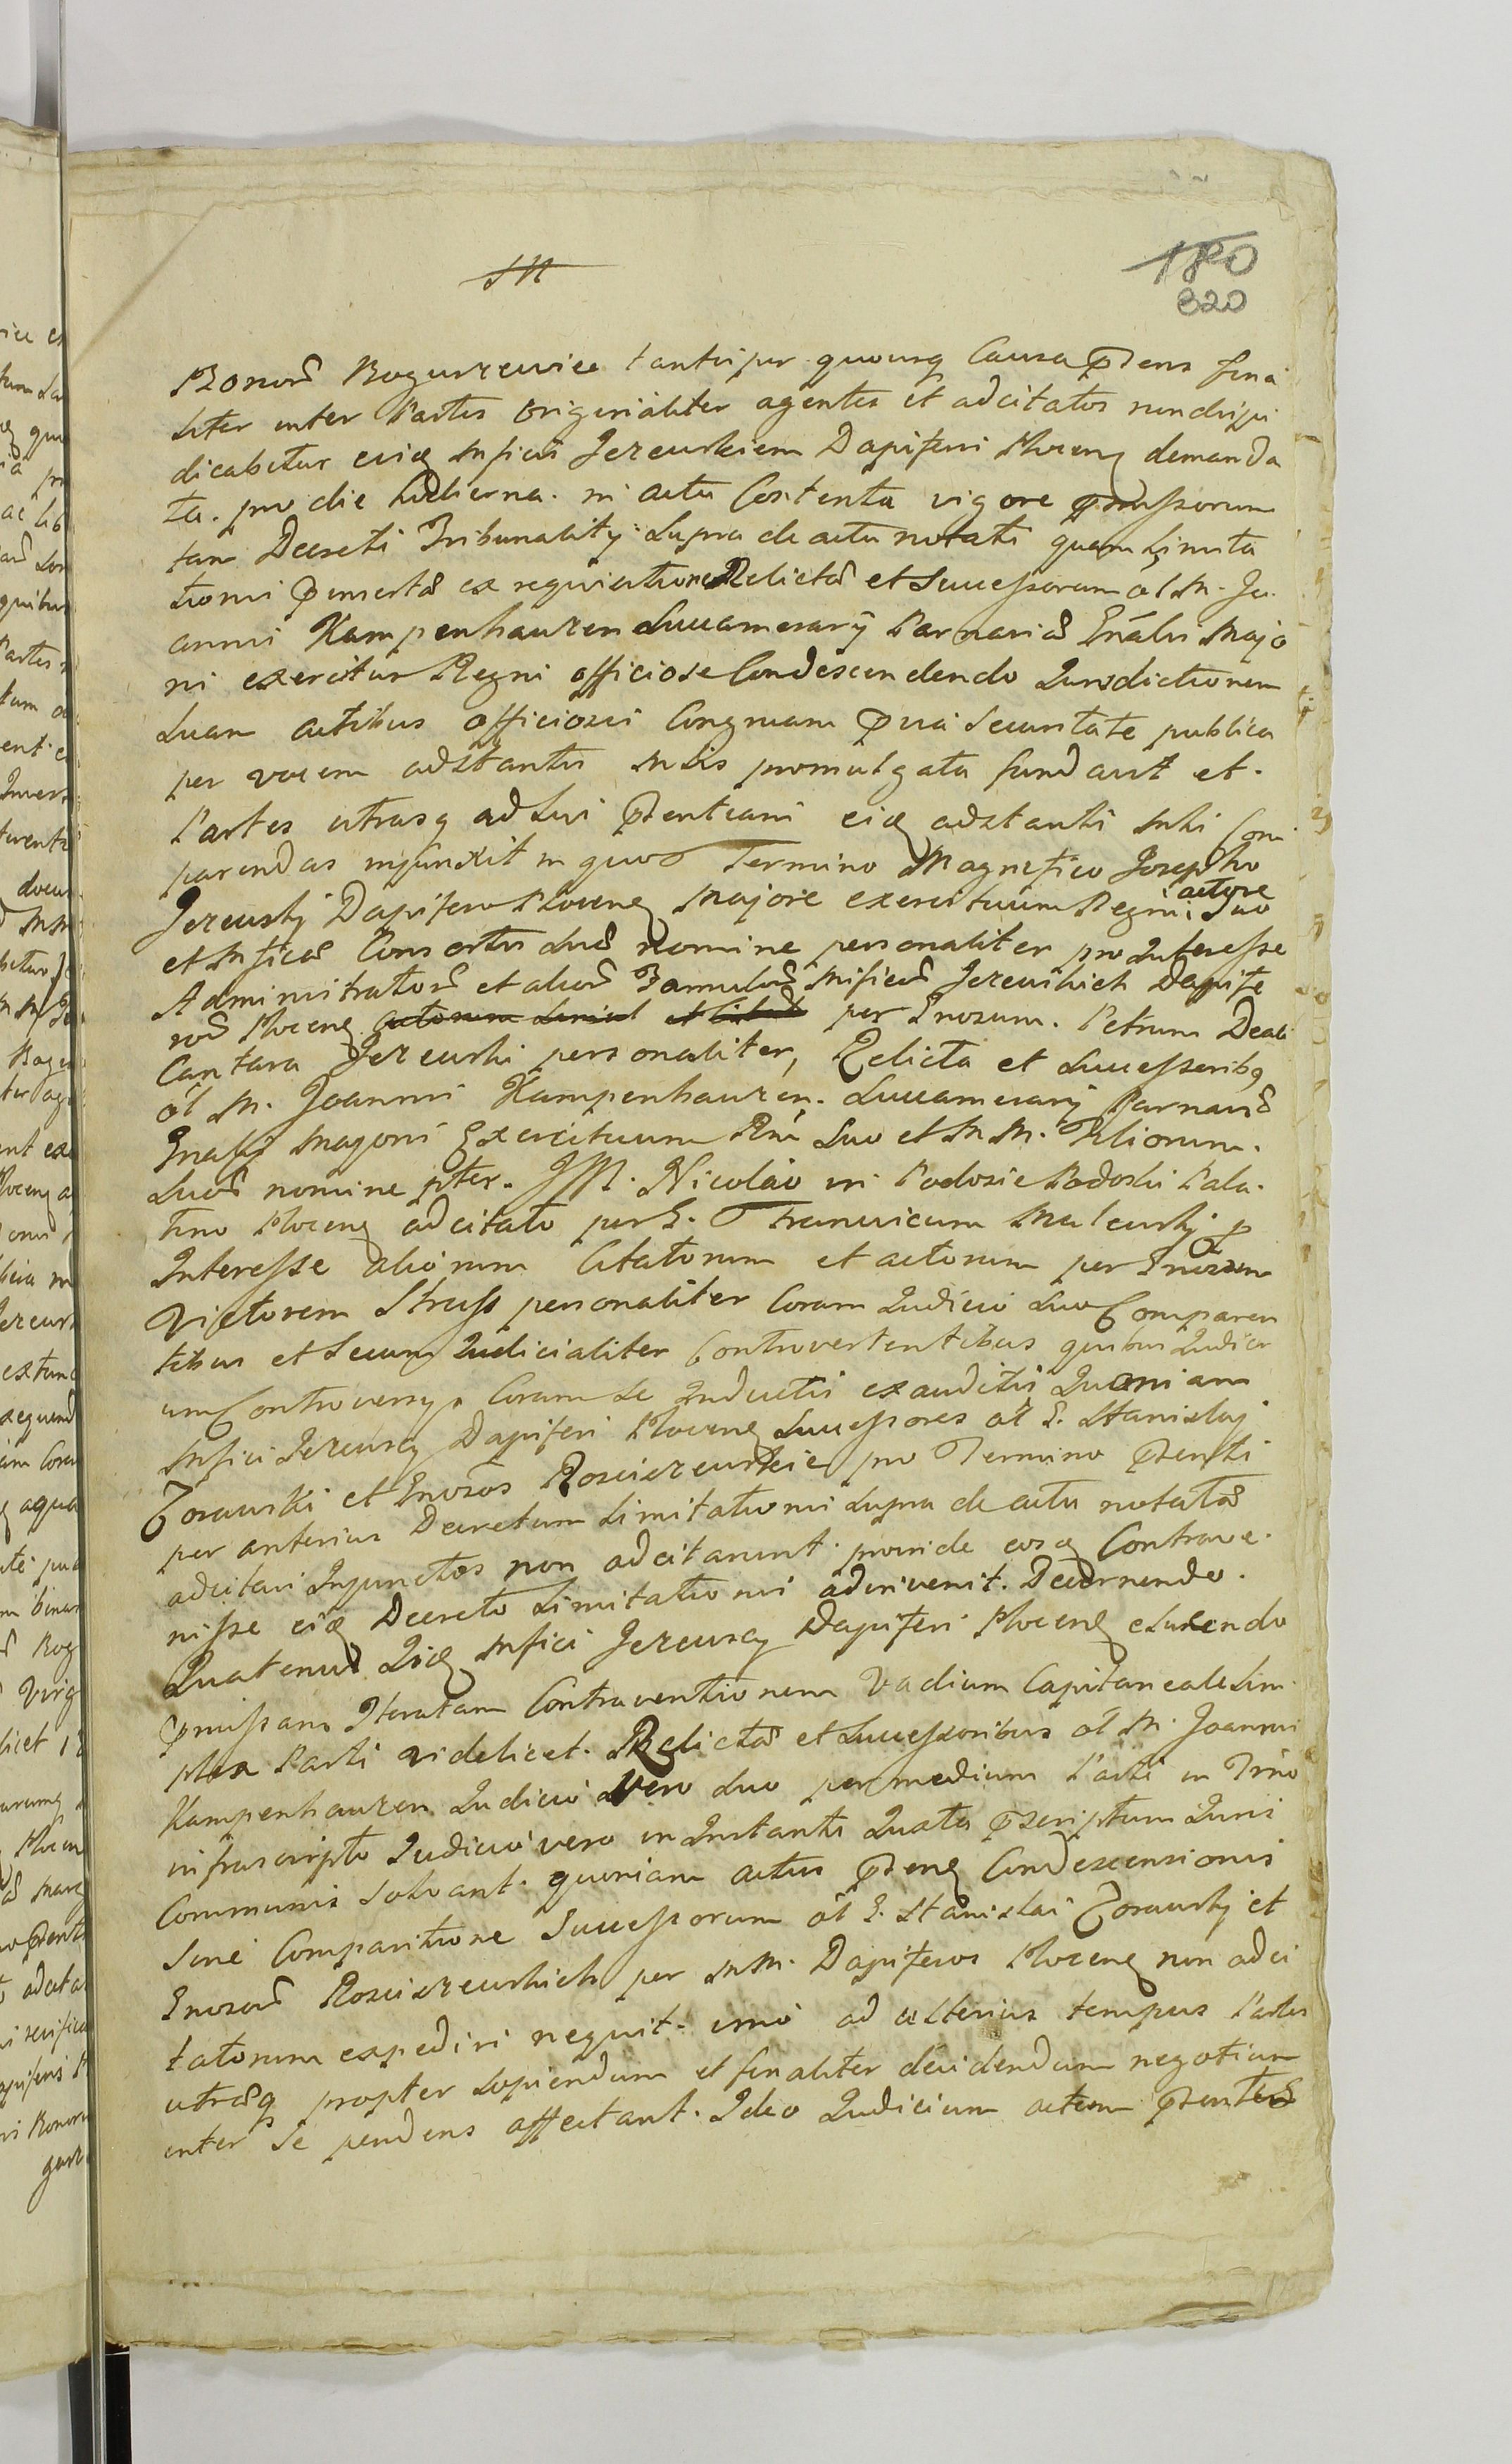 180
320
Bonorū Bogurzewice tantisper quousq Causa pñens fina
liter inter Partes originaliter agentes et adcitatos non dijju
dicabitur eidq Mficis Jezewskiem Dapiferi Plocenq demanda
ta. pro die hodierna. in actu Contenta vigore pmissorum
tam Decreti Tribunality Supra de actu notati quam Limita
tionis pinsertæ ex requisitione Relictæ et Successorum ol M. Jo
annis Kampenhauzen Succamerary Parnaviæ Gnãlis Majo
ris exercitus Regni officiose Condescendendo Jurisdictionem
Suam actibus officiosis Congruam pvia Securitate publica
per vocem adstantis Mlis promulgata fundavit et
Partes utrasq ad Sui pñentiam eidq adstanti Mli Com
parendas injunxit in quo Termino Magnifico Josepho
Jezewsky Dapifero Plocenq Majore exercituum Regni actore Suo
et Mficæ Consortis Suæ nomine personaliter pro Interesse
Administratorū et aliorū Famulorū Mficorū Jezewskich Dapife
rorū Plocenq per Gnosum. Petrum Deal
Cantara Jezewski personaliter, Relicta et Successoribq
ol M. Joannis Kampenhauzen. Succamerary Parnaviæ
Gnalis Majoris Exercituum Rni Suo et M M. Filiorum.
Suorū nomine pter. J M. Nicolao in Podosie Podoski Pala
tino Plocenq adcitato per G. Franciscum Malewsky p
Interesse aliorum Citatorum et actorum per Gnosum
Victorem Struss personaliter Coram Judicio Suo Comparen
tibus et Secum Judicialiter Controvertentibus quibus Judici
um Controversys Coram Se Inductis exauditis Quoniam
Mfici Jezewscy Dapiferi Plocenq Successores ol G. Stanislaj
Zorawski et Gnosos Rosciszewskie pro Termino pñenti
per anterius Decretum Limitationis Supra de actu notatæ
adcitari Injunctos non adcitarunt. proinde eosq Contrave
nisse eidq Decreto Limitationis adinvenit. Decernendo.
Quatenus Iidq Mfici Jezewscy Dapiferi Plocenq eluendo
pmissam Iteratam Contraventionem Vadium Capitaneale Sim
plex Parti videlicet. Relictæ et Successoribus ol M. Joannis
Kampenhauzen Judicio Vero Suo per medium Parti in Trno
infrascripto Judicio vero in Instanti Juxta pscriptum Juris
Communis Solvant. quoniam actus pñenq Condescensionis
Sine Comparitione Successorum ol G. Stanislai Zorawsky et
Gnosorū Rosciszewskich per M M. Dapiferos Plocenq non adci
tatorum expediri nequit. imo ad ulterius tempus Partes
utræq propter Sopiendum et finaliter decidendum negotium
inter Se pendens affectant. Ideo Judicium actum pñentis